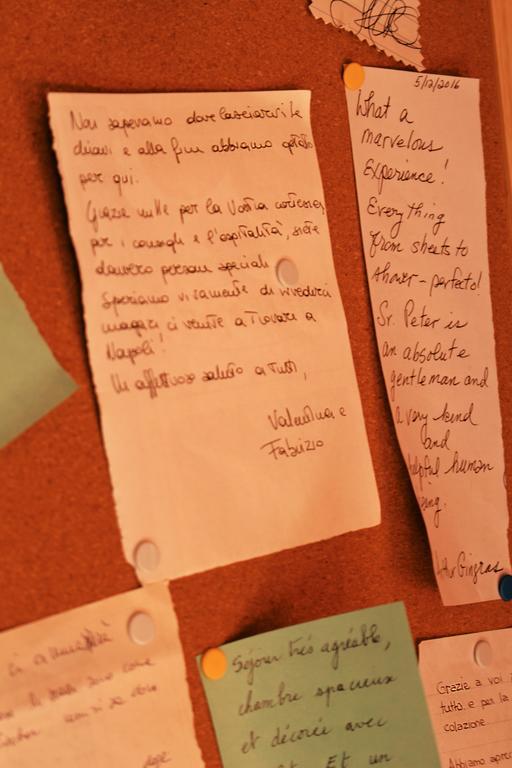 Non sapevamo dove lasciarvi le
chiavi e alla fine abbiamo optato
per qui.
Grazie mille per la Vostra cortesia,
per i consigli e l'ospitalità, siete
davvero persone speciali
Speriamo vivamente di rivederci
magari ci venite a trovare a
Napoli!
Un affettuoso saluto a tutti,
Valentina e
Fabrizio
5/12/2016
What a
marvelous
Experience!
Everything
from sheets to
shower - perfecto!
Sr. Peter is
an absolute
gentleman and
a very kind
and
helpful human
being.
Arthur Gingras
Séjour très agréable,
chambre spacieux
et décorée avec
Et un
Grazie a voi
tutto e per la
colazione.
Abbiamo